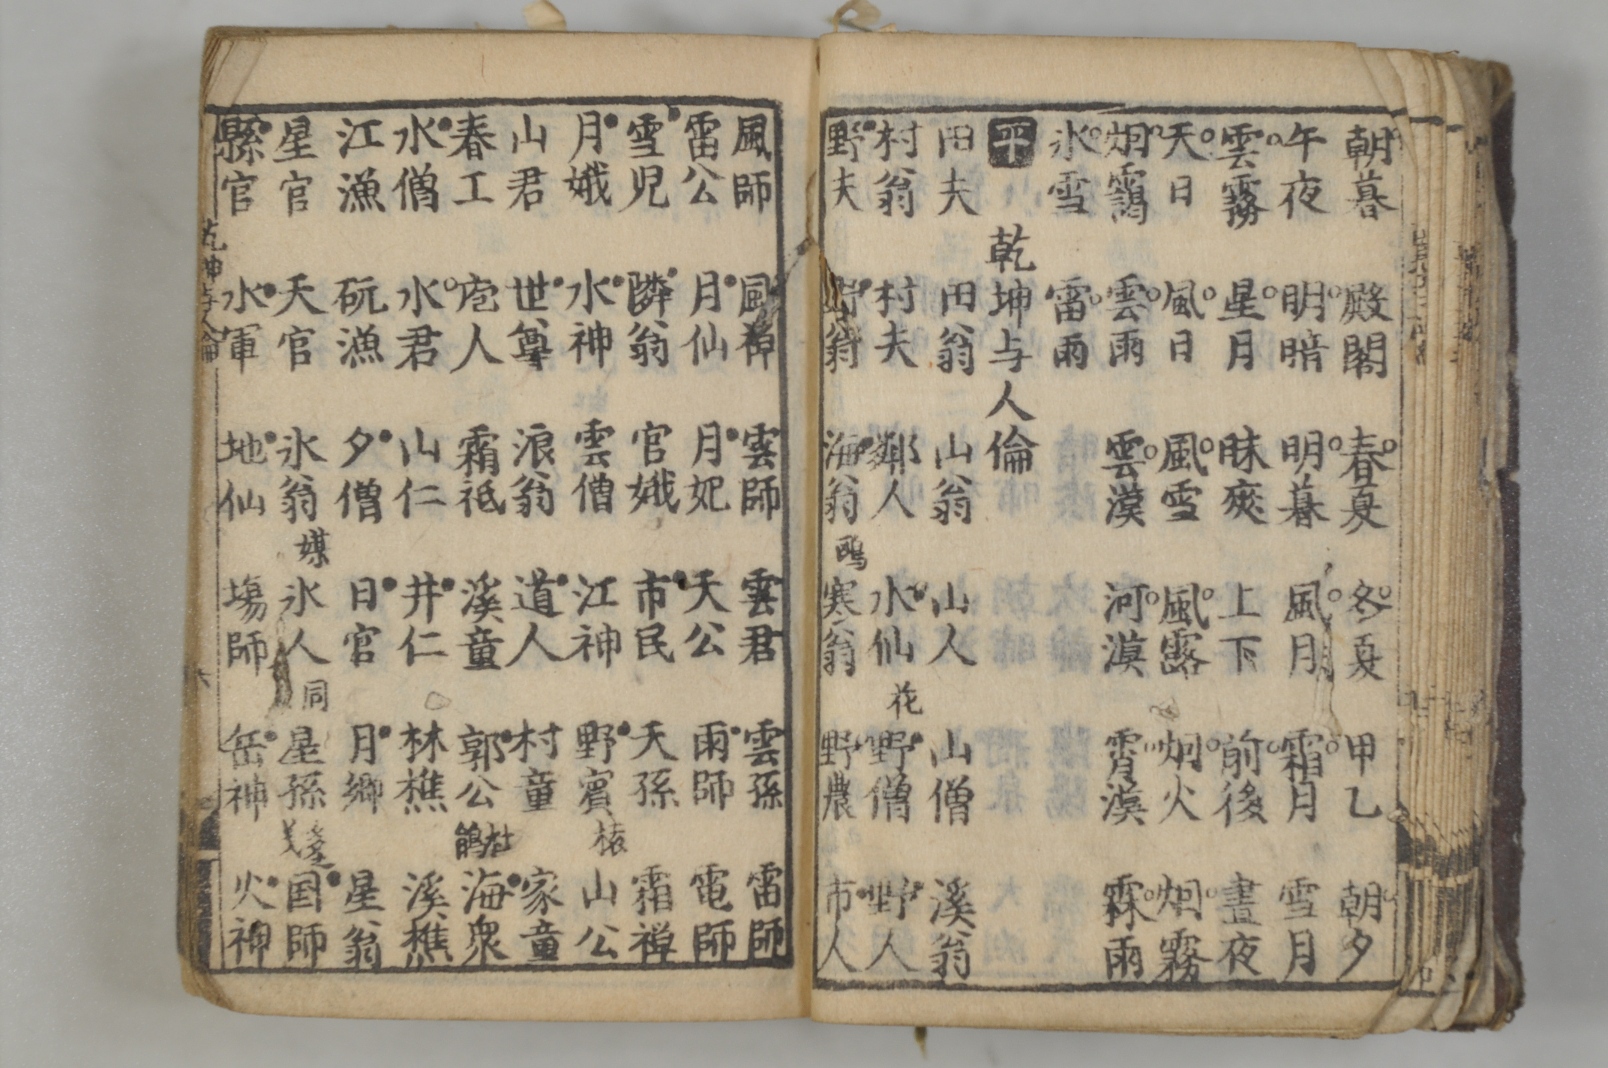 朝暮 殿閣 春夏 冬夏 甲乙 朝夕
午夜 明暗 明暮 風月 霜月 雪月
雲霧 星月 昧爽 上下 前後 晝夜
天日 風日 風雪 風露 烟火 烟霧
烟靄 雲雨 雲漠 河漠 霄漠 霖雨
氷雪 雷雨
平 乾坤与人倫
田夫 田翁 山翁 山人 山僧 溪翁
村翁 村夫 鄰人 水仙花 野僧 野人
野夫 野翁 海翁鷗 寒翁 野農 市人
風師 風神 雲師 雲君 雲孫 雷師
雷公 月仙 月妃 天公 雨師 電師
雪児 隣翁 官娥 市民 天孫 霜禅
月娥 水神 雲僧 江神 野賓猿 山公
山君 世尊 浪翁 道人 村童 家童
春工 庖人 霜祗 溪童 郭公杜鵑 海衆
水僧 水君 山仁 井仁 林樵 溪樵
江漁 矼漁 夕僧 日官 月郷 星翁
星官 天官 氷翁媒 氷人同 星孫 国師
縣官 水軍 地仙 塲師 岳神 火神